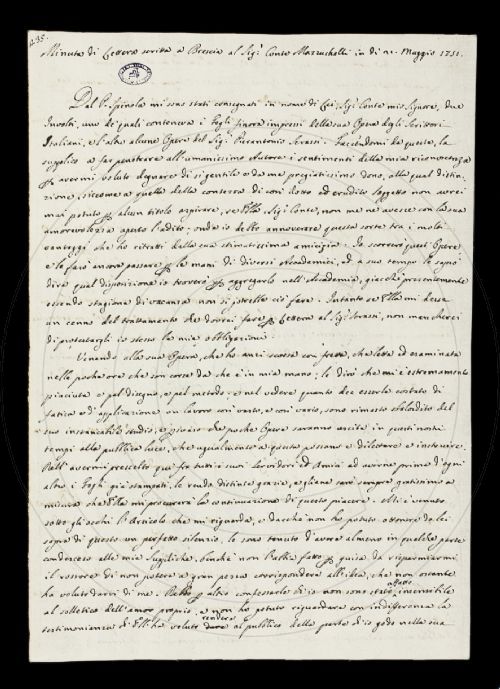 235.
Minuta di Lettera scritta a Brescia al Sig.r Conte Mazzuchelli in di 21. Maggio 1751.
Dal P. Spinola mi sono stati consegnati in nome di Lei, Sig.r Conte mio Signore, due
Involti, uno de' quali conteneva i Fogli finora impressi della sua Opera degli Scrittori
Italiani, e l'altro alcune Opere del Sig.r Pierantonio Serassi. Facendomi da questo, la
supplico a far penetrare all'umanissimo Autore i sentimenti della mia riconoscenza
avermi voluto degnare di sì gentile e da me pregiatissimo dono, alla qual distin-
zione, siccome a quella della contezza di così dotto ed erudito soggetto non avrei
mai potuto alcun titolo aspirare, se Ella, Sig.r Conte, non me ne avesse con la sua
amorevolezza aperto l'adito; onde io debbo annoverare questa sorte tra i molti
vantaggi che ho ritratti dalla sua stimatissima amicizia. Io scorrerò queste Opere
e le farò ancora passare le mani di diversi Accademici, ed a suo tempo le saprò
dire qual disposizione io troverò aggregarlo nell'Accademia, giacchè presentemente
essendo stagione di vacanza non si potrebbe ciò fare. Intanto se Ella mi dessa
un cenno del trattamento che dovrei fare Lettera al Sig.r Serassi, non mancherei
di protestargli io stesso la mia obbligazione.
Venendo alla sua Opera, che ho anzi scorsa con fretta, che letta ed esaminata
nelle poche ore che son corse da che è in mia mano; le dirò che mi è estremamente
piaciuta e pel disegno, e pel metodo; e nel vedere quanto dee esserle costato di
fatica e di applicazione un lavoro così vasto, e così vario, sono rimasto sbalordito del
suo instancabile studio; e poche Opere saranno uscite in questi nostri
tempi alla pubblica luce, che ugualmente a questa possano e dilettare e instruire.
Dell'avermi prescelto qui fra tutti i suoi servidori ed Amici ad averne prima d'ogni
altro i Fogli già stampati, le rendo distinte grazie, e gliene sarò sempre gratissimo a
misura che Ella mi procurerà la continuazione di questo piacere. Mi è venuto
sotto gli occhi l'Articolo che mi riguarda, e dacchè non ho potuto ottenere da lei
sopra di questo un perfetto silenzio, le sono tenuto d'avere almeno in qualche parte
condesceso alle mie suppliche, benchè non l'abbia fatto guisa da risparmiarmi
il rossore di non potere a gran pezza corrispondere all'idea, che non ostante
ha voluto darci di me. Debbo altro confessarle ch'io non sono stato affatto insensibile
al solletico dell'amor proprio, e non ho potuto riguardare con indifferenza la
testimonianza ch'Ella ha voluto rendere al pubblico della parte ch'io godo nella sua